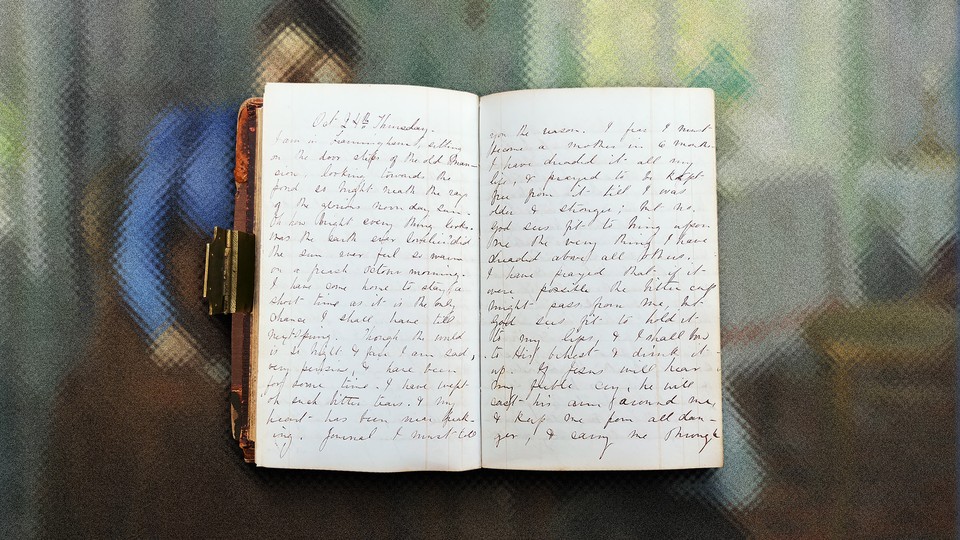 Oct 24th Thursday.
I am in Framingham, sitting
on the door steps of the old Man-
sion, looking towards the
pond so bright neath the rays
of the glorious noon day sun.
Oh how bright every thing looks.
Was the earth ever lovelier? did
the sun ever feel so warm
on a fresh October morning.
I have come home to stay a
short time as it is the only
chance I shall have till
next spring. Though the world
is so bright & free I am sad,
very pensive, & have been
for some time. I have wept
oh such bitter tears. & my
heart has been near break-
ing. Journal I must tell
you the reason. I fear I must
become a mother in 6 months
I have dreaded it all my
life, & prayed to be kept
free from it till I was
older & stronger; but no,
God sees fit to bring upon
me the very thing I have
dreaded above all others.
I have prayed that if it
were possible the bitter cup
might pass from me, but
God sees fit to hold it
to my lips, & I shall bow
to His behest & drink it
up. If Jesus will hear
my feeble cry, he will
cast his arm around me,
& keep me from all dan-
ger, & carry me through